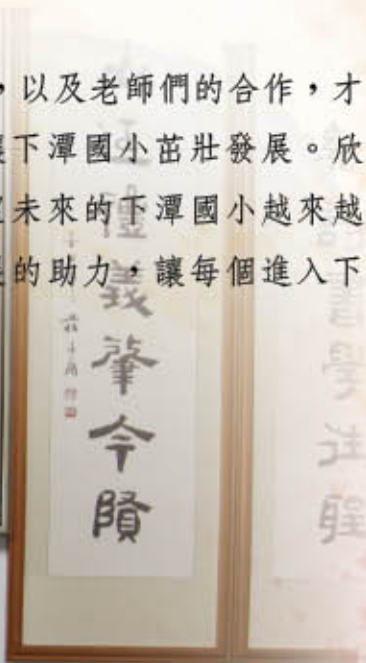 ，以及老師們的合作，才
下潭國小茁壯發展。欣
未來的下潭國小越來越
的助力，讓每個進入下
禮義肇今
書學往